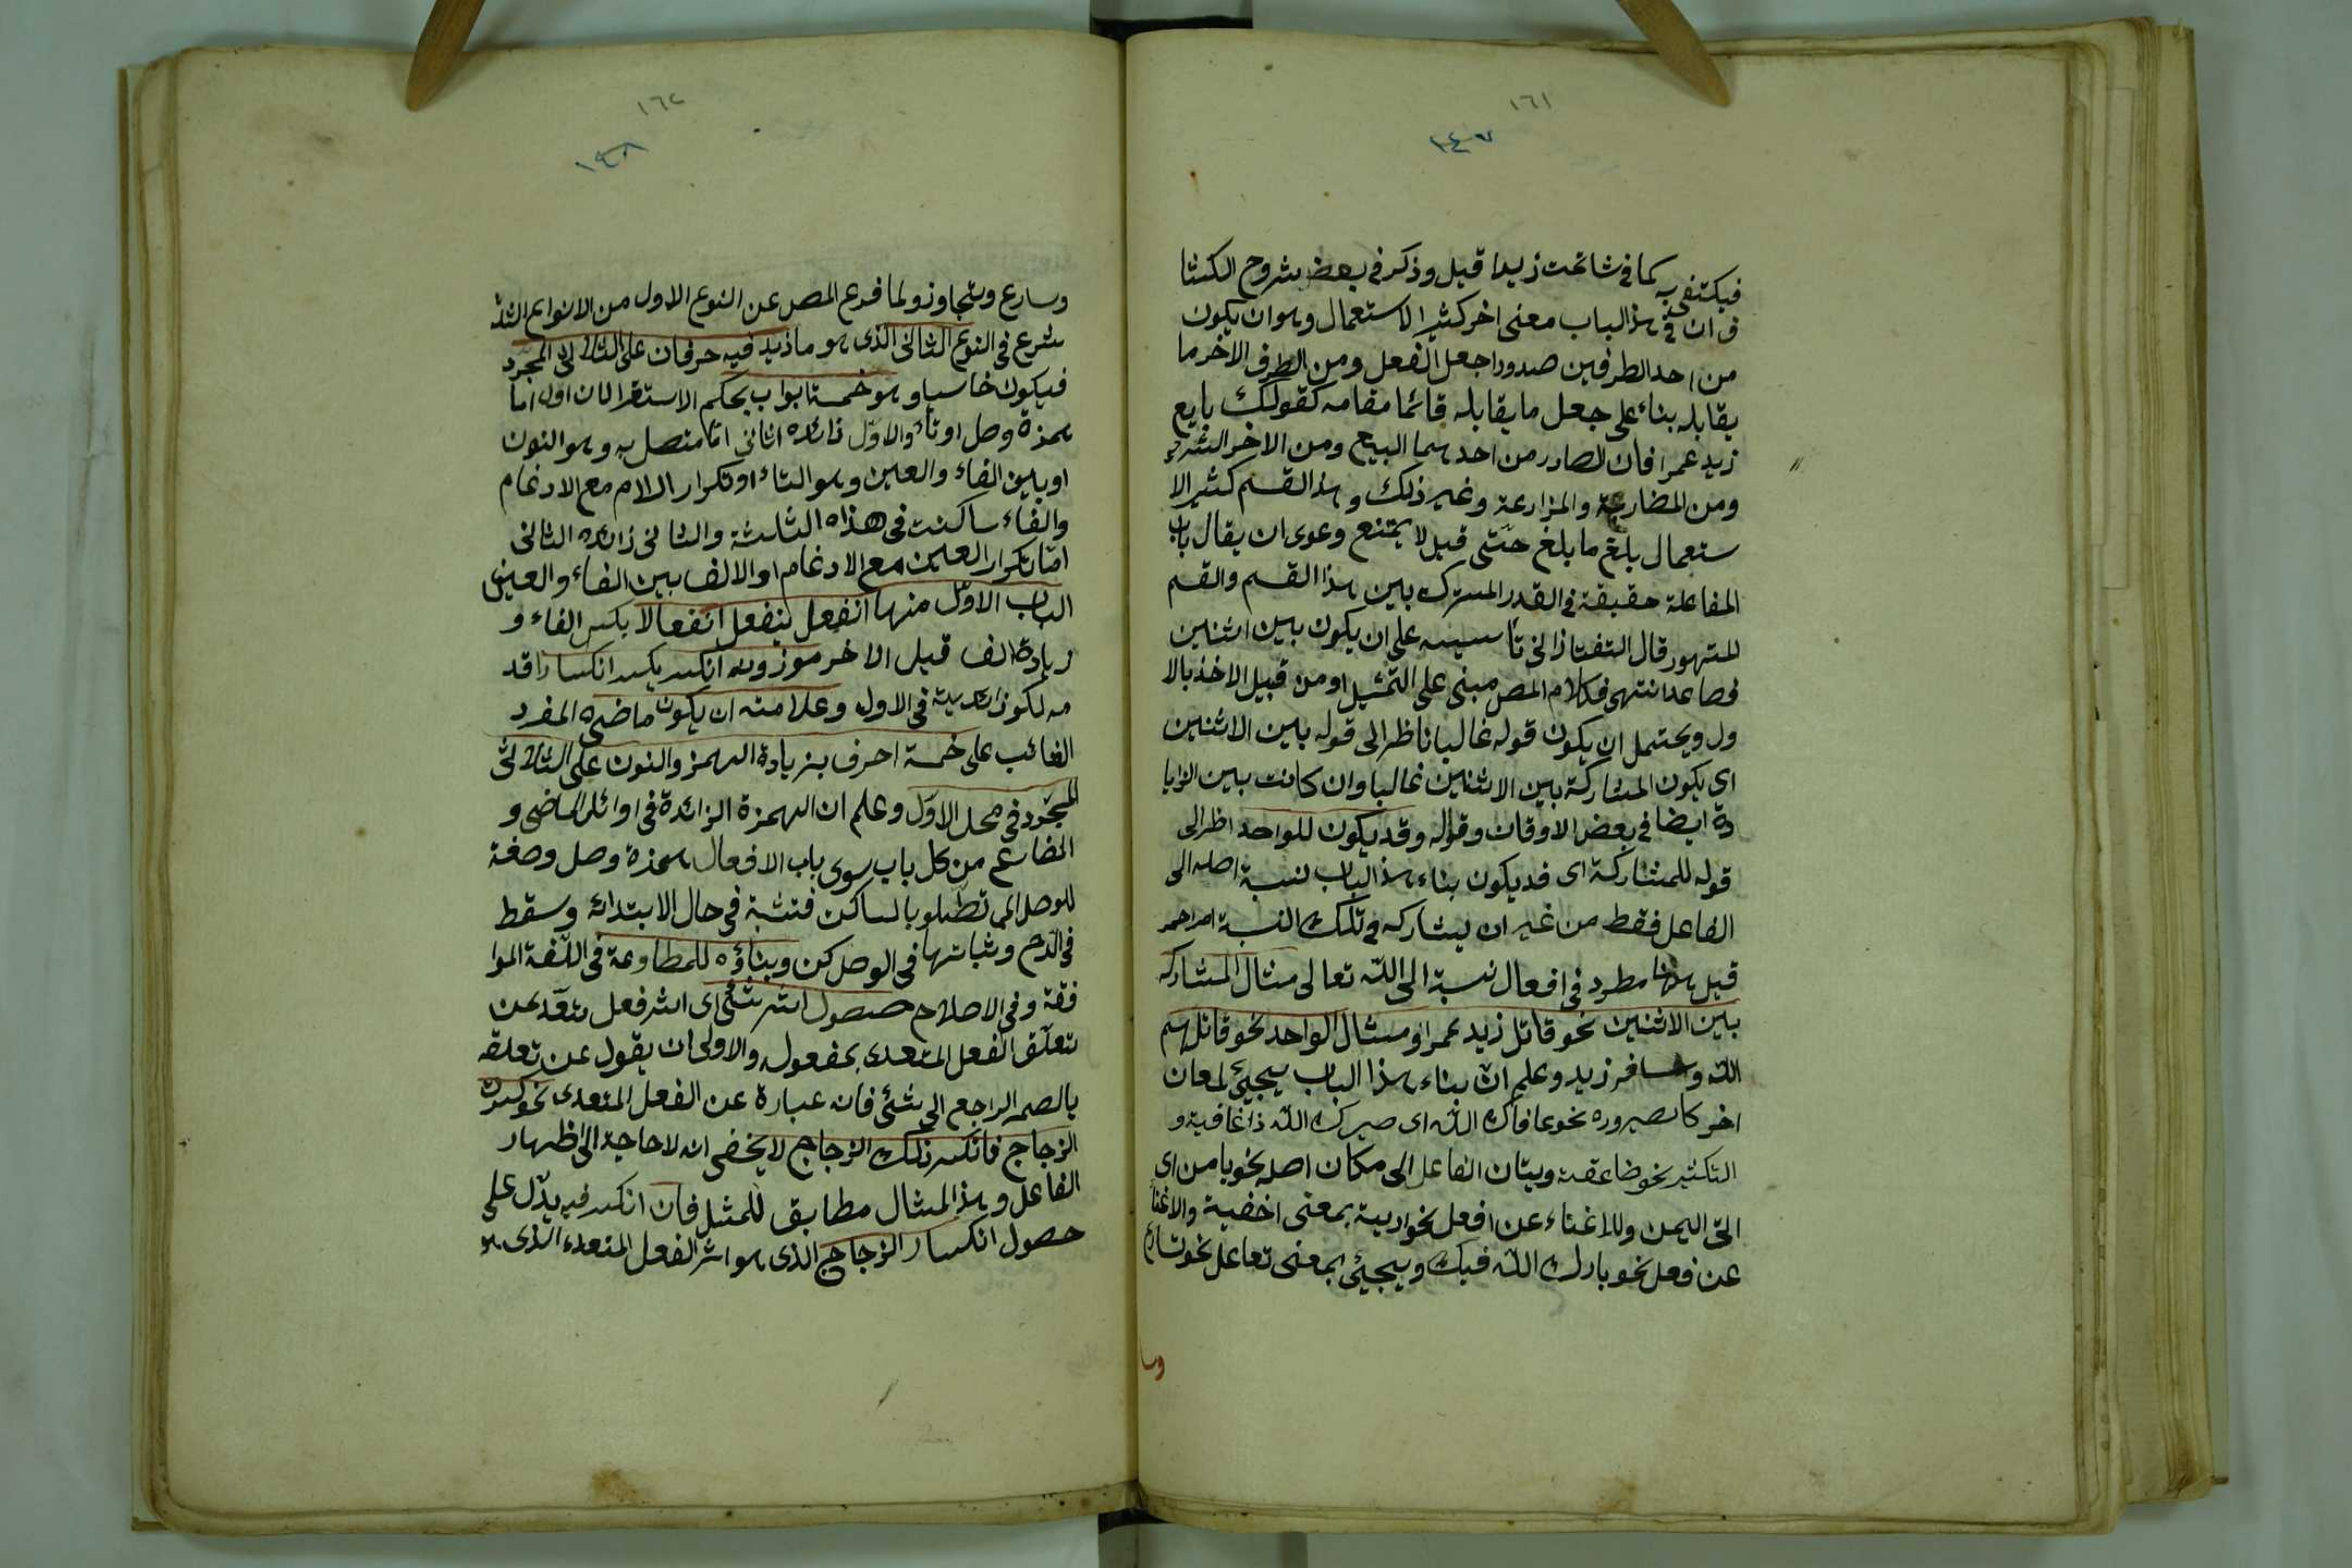 ١٦١
١٤٧
فيكتفى به كما فى شاتمت زيدا قيل وذكر فى بعض شروح الكشا
ف ان فى هذا الباب معنى اخر كثير الاستعمال وهو ان يكون
من احد الطرفين صدور اجعل الفعل ومن الطرف الاخر ما
يقابله بناء على جعل ما يقابله قائما مقامه كقولك بايع
زيد عمرا فان الصادر من احدهما البيع ومن الاخر الشراء
ومن المضارعة والمزارعة وغير ذلك وهذا القسم كثير الا
ستعمال بلغ ما بلغ حتى قيل لا يمتنع دعوى ان يقال باب
المفاعلة حقيقة فى القدر المشترك بين هذا القسم والقسم
المشهور قال التفتازانى تأسيسه على ان يكون بين اثنين
فصاعدا انتهى فكلام المص مبنى على التمثيل او من قبيل الاخذ بالا
ول ويحتمل ان يكون قوله غالبا ناظرا الى قوله بين الاثنين
اى يكون المشاركة بين الاثنين غالبا وان كانت بين الزيا
دة ايضا فى بعض الاوقات وقوله وقد يكون للواحد اظر الى
قوله للمشاركة اى قد يكون بناء هذا الباب لنسبة اصله الى
الفاعل فقط من غير ان يشاركه فى تلك النسبة امر اخر
قيل هذا مطرد فى افعال نسبة الى الله تعالى مثال المشاركه
بين الاثنين نحو قاتل زيد عمرا ومثال الواحد نحو قاتلهم
الله وسافر زيد وعلم ان بناء هذا الباب يجيئ لمعان
اخر كالصيروره نحو عافاك الله اى صيرك الله ذا عافية و
التكثير نحو ضاعفته وبيان الفاعل الى مكان اصله نحو يامن اى
اتى اليمن وللاغناء عن افعل نحو اريته بمعنى اخفيته والاغنا
عن فعل نحو بارك الله فيك ويجيئ بمعنى تفاعل نحو تسارع
وسا
١٦٢
١٤٨
وسارع وتجاوز ولما فرع المص عن النوع الاول من الانواع الثلثة
شرع فى النوع الثانى الذى هو ما زيد فيه حرفان على الثلاثى المجرد
فيكون خماسيا وهو خمسة ابواب بحكم الاستقرا لان اوله اما
همزة وصل او تاء والاول زائده الثانى اما متصل به وهو النون
او بين الفاء والعين وهو التاء او تكرار اللام مع الادغام
والفاء ساكنة فى هذه الثلثة والثانى زائده الثانى
اما تكرار العين مع الادغام او الالف بين الفاء والعين
الباب الاول منها انفعل ينفعل انفعالا بكسر الفاء و
زيادة الف قبل الاخر موزونه انكسر ينكسر انكسارا قد
مه لكون زائديه فى الاول وعلامته ان يكون ماضيه المفرد
الغائب على خمسة احرف بزيادة الهمز والنون على الثلاثى
المجرد فى محل الاول وعلم ان الهمزة الزائدة فى اوائل الماضى و
المضارع من كل باب سوى باب الافعال همزة وصل وصفة
للوصل الى تطلو بالساكن فتثبة فى حال الابتدائه وسقط
فى الدرم وثباتها فى الوصل كن وبناؤه للمطاوعة فى اللغة الموا
فقة وفى الاصلاح حصول اثر شئ اى اثر فعل بتعد عن
تعلق الفعل المتعدى بمفعوله والاولى ان يقول عن تعلقه
بالضمير الراجع الى شئ فان عبارة عن الفعل المتعدى نحو كسرت
الزجاج فانكسر ذلك الزجاج لا يخفى انه لا حاجة الى اظهار
الفاعل وهذا المثال مطابق للمثل فان انكسر فيه يدل على
حصول انكسار الزجاج الذى هو اثر الفعل المتعدى الذى هو